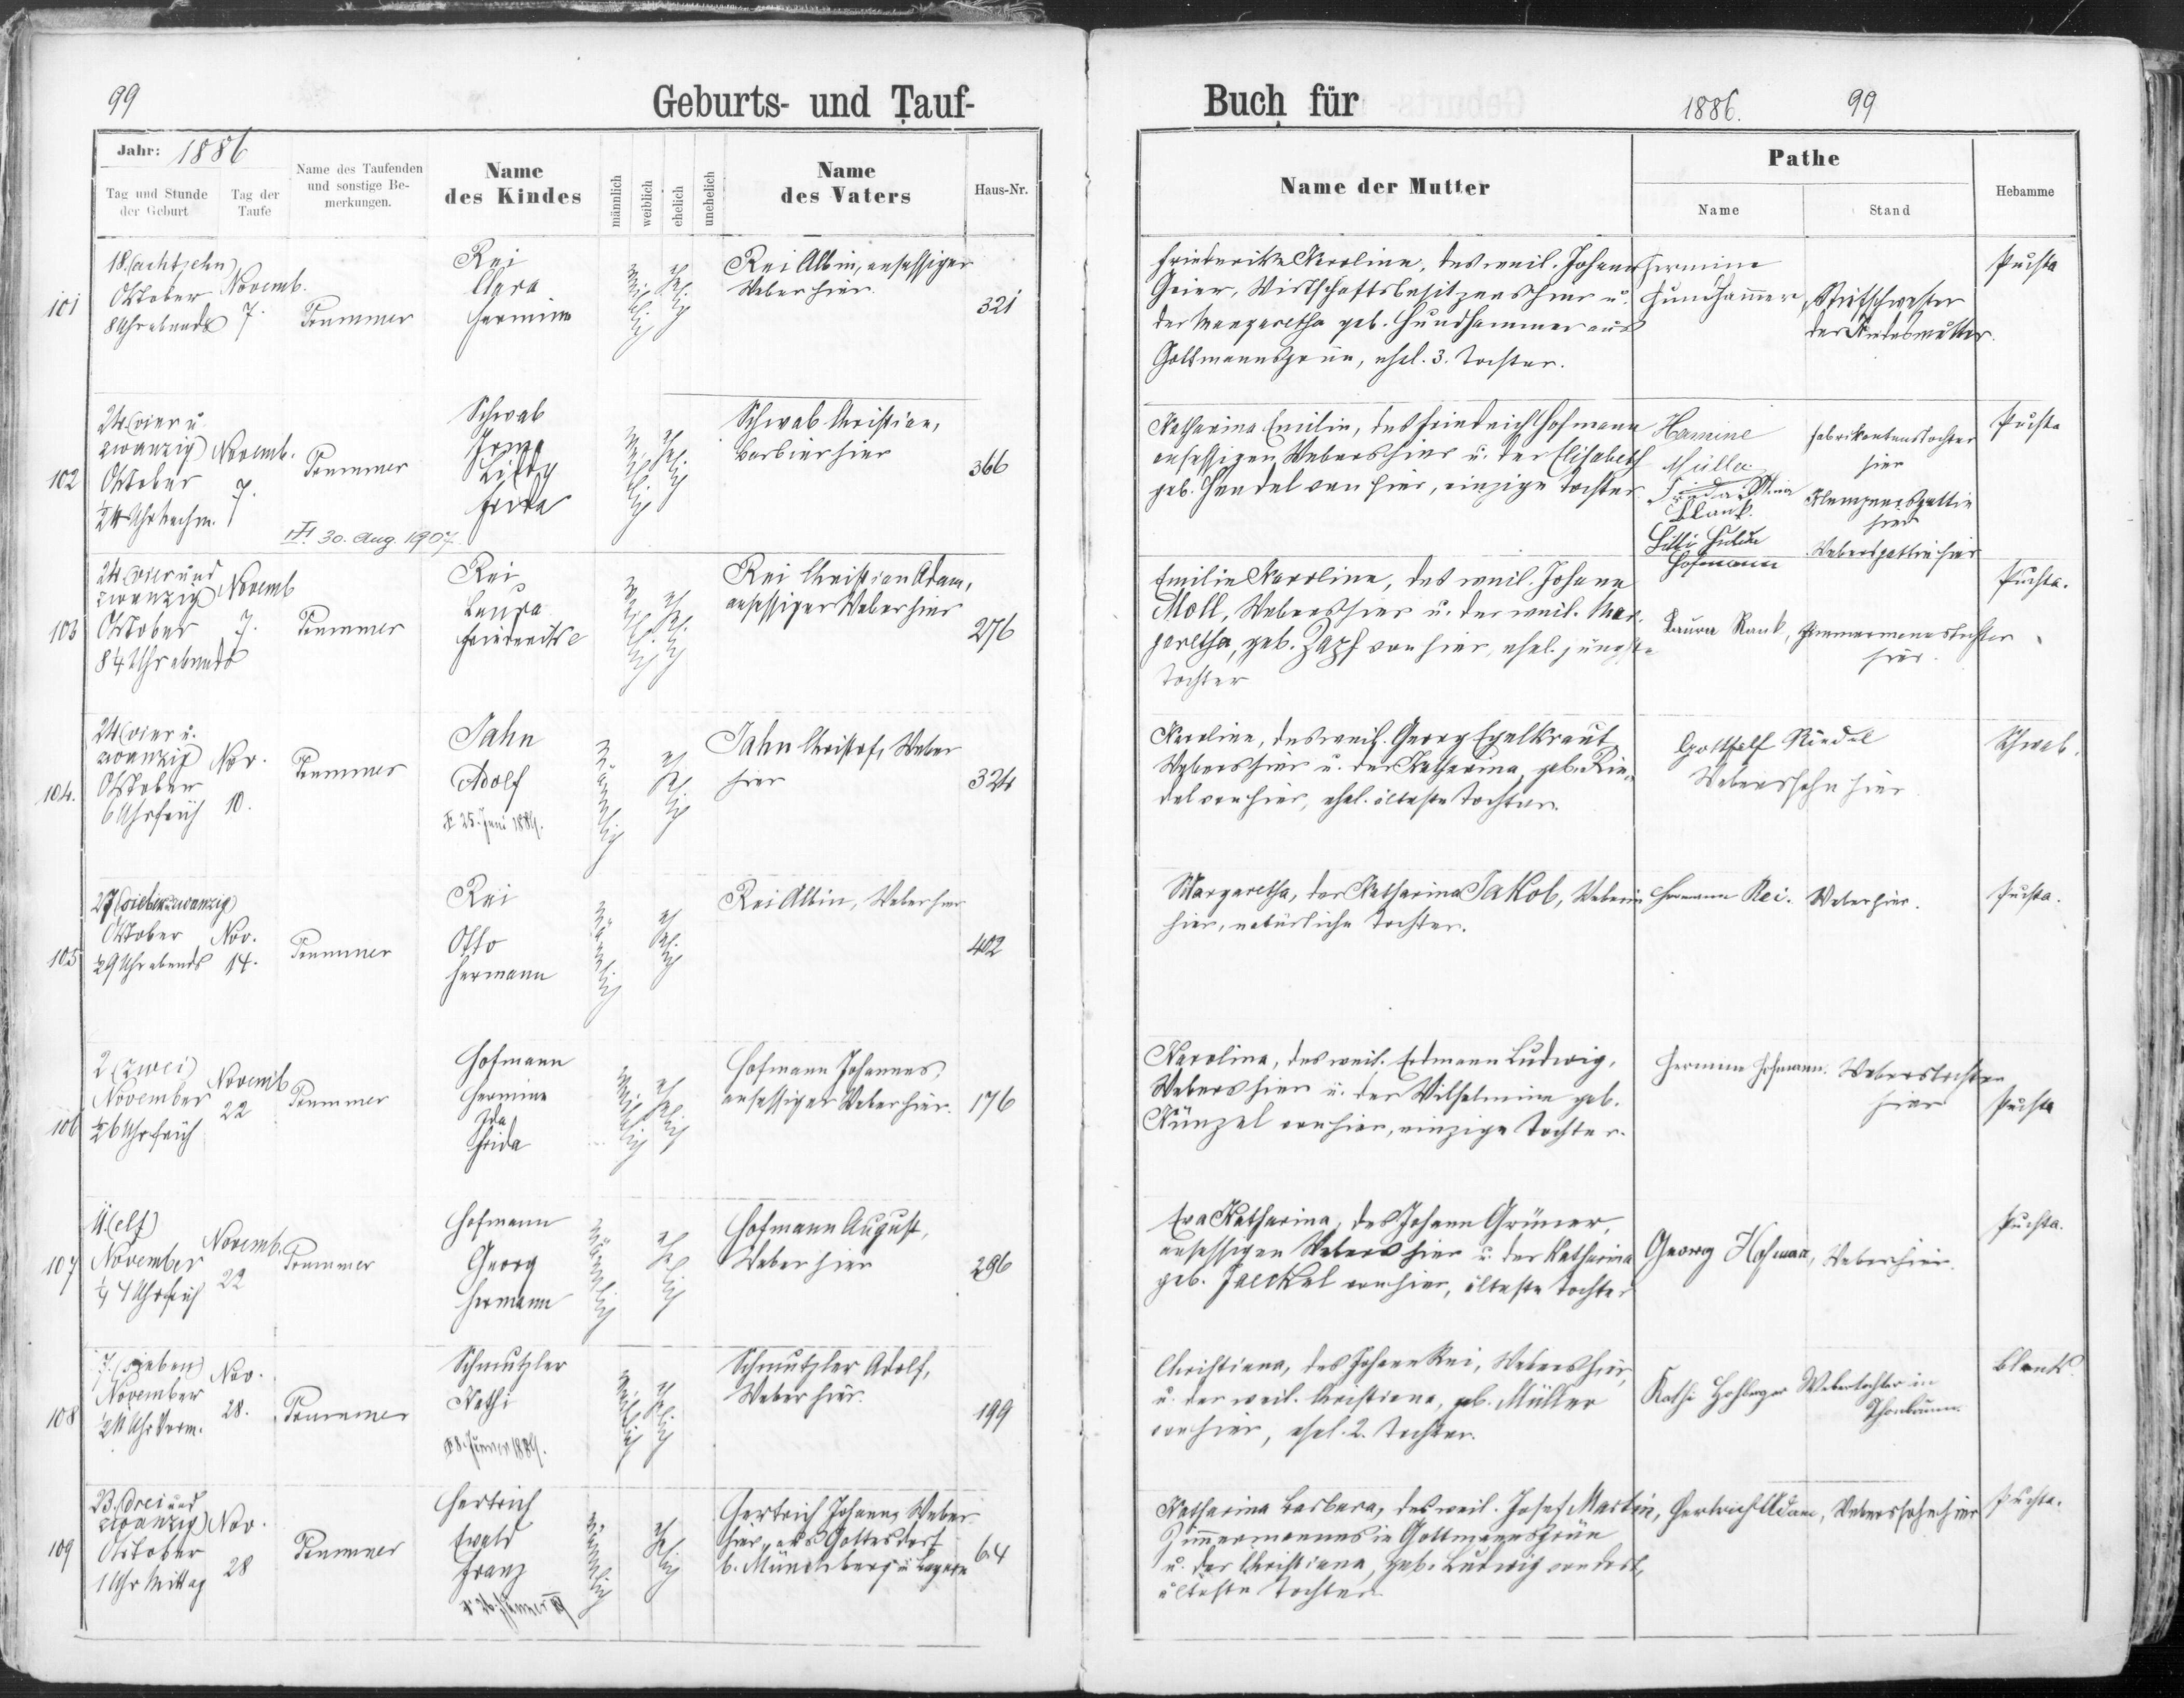 99
Geburts- und Tauf-
Jahr: 1886
Tag und Stunde der Geburt
Tag der Taufe
Name des Taufenden und sonstige Be-merkungen.
Name des Kindes
männlich
weiblich
ehelich
unehelich
Name des Vaters
Haus-Nr.
101
18. (achtzehn)
Oktober
8 Uhr abends
Novemb.
7.
Trummer
Rei
Clara
Hermine
weiblich
ehelich
Rei Albin, ansässiger
Weber hier.
321
102
24 (vier u.
zwanzig)
Oktober
Novemb.
7.
Trummer
30. Aug. 1907
Schwab
Irma
Frida
weiblich
ehelich
Schwab Christian,
Barbier hier
366
103
24 (vier und
zwanzig)
Oktober
8¼ Uhr abends
Novemb
7.
Trummer
Rei
Laura
Friederike
weiblich
ehelich
Rei Christian Adam,
ansässiger Weber hier
276
104.
24 (vier u.
zwanzig)
Oktober
6 Uhr früh
Nov.
10.
Trummer
Jahn
Adolf
25. Juni 1889.
männlich
ehelich
Jahn Christof, Weber
hier
324
105
27 (siebenzwanzig)
Oktober
½9 Uhr abends
Nov.
14.
Trummer
Rei
Otto
Hermann
männlich
ehelich
Rei Albin, Weber hier
402
106
2 (zwei)
November
½6 Uhr früh
Novemb
22
Trummer
Hofmann
Hermine
Ida
Frida
weiblich
ehelich
Hofmann Johannes,
ansässiger Weber hier.
176
107
11 (elf)
November
Novemb.
22
Trummer
Hofmann
Georg
Hermann
männlich
ehelich
Hofmann August,
Weber hier
296
108
7. (sieben)
November
½11 Uhr Vorm.
Nov.
28.
Trummer
Schmutzler
Kathi
weiblich
ehelich
Schmutzler Adolf,
Weber hier.
199
109
23. (drei und
zwanzig)
Oktober
1 Uhr Mittag
Nov.
28
Trummer
Hertrich
Ewald
Franz
männlich
ehelich
Hertrich Johann, Weber
hier, aus Gottersdorf
b. Münchberg in Bayern
64
Buch für
1886.
99
Name der Mutter
Pathe
Name
Stand
Hebamme
Friederike Karoline, des weil. Johann
Geier, Wirtschaftsbesitzers hier u.
der Margaretha geb. Hundhammer aus
Gottmannsgrün, ehel. 3. Tochter.
Hermine
Hundhammer,
Stiefschwester
der Kindesmutter.
Puchta
Katharina Emilie, des Friedrich Hofmann
ansässigen Webers hier u. der Elisabeth
geb. Handel von hier, einzige Tochter
Hermine
Müller
Blank.
Hofmann
Fabrikantenstochter
hier
Klempnersgattin
hier
Webersgattin hier
Puchta
Emilie Karoline, des weil. Johann
Moll, Webers hier u. der weil. Mar-
garetha, geb. Zapf von hier, ehel. jüngste
Tochter
Laura Rank,
Zimmermannstochter
hier.
Puchta.
Karoline, des weil. Georg Egelkraut
Webers hier u. der Katharina, geb. Rie-
del von hier, ehel. älteste Tochter.
Gotthelf Riedel
Weberssohn hier
Schwab.
Margaretha, der Katharina Jakob, Weberin
hier, natürliche Tochter.
Hermann Rei.
Weber hier.
Puchta.
Karolina, des weil. Erdmann Ludwig,
Webers hier u. der Wilhelmine geb.
Künzel von hier, einzige Tochter.
Hermine Hofmann.
Weberstochter
hier
Puchta
Eva Katharina, des Johann Grüner,
ansässigen Webers hier u. der Katharina
geb. Jaeckel von hier, älteste Tochter
Georg Hofmann, Weber hier.
Puchta.
Christiana, des Johann Rei, Webers hier,
u. der weil. Christiane, geb. Müller
von hier, ehel. 2. Tochter.
Kathi
Weberstochter in
Thonbrunn.
Blank.
Katharina Barbara, des weil. Josef Martin,
Zimmermannes in Gottmannsgrün
u. der Christiana, geb. Ludwig von dort,
älteste Tochter.
Hertrich Adam, Weberssohn hier
Puchta.